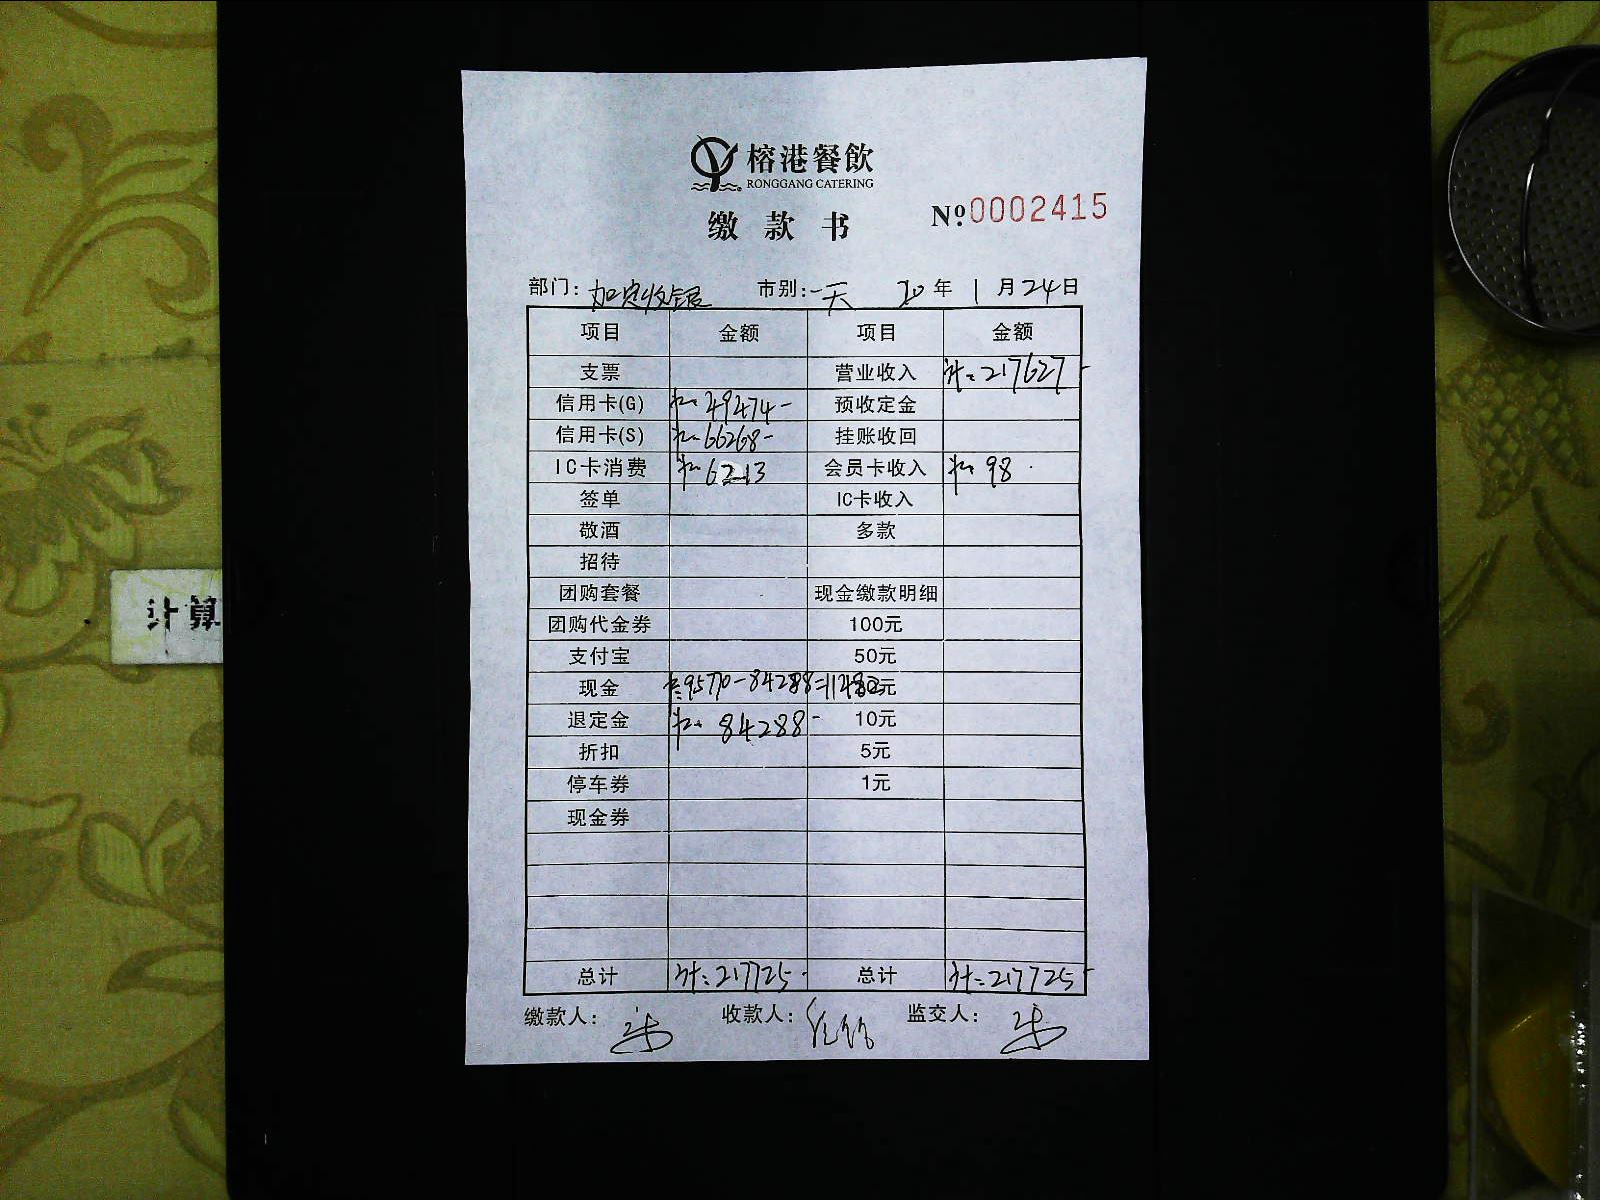 榕港餐飲
RONGGANG CATERING
缴款书
№0002415
部门: 加定收银 市别: 一天 20年1月24日
项目 金额 项目 金额
支票 营业收入 计:217627-
信用卡(G) 49474- 预收定金
信用卡(S) 66268- 挂账收回
IC卡消费 6213 会员卡收入 98
签单 IC卡收入
敬酒 多款
招待
团购套餐 现金缴款明细
团购代金券 100元
支付宝 50元
现金 95770-84288=11482 元
退定金 84288- 10元
折扣 5元
停车券 1元
现金券
总计 计:217725- 总计 计:217725-
缴款人: 收款人: 监交人:
计算